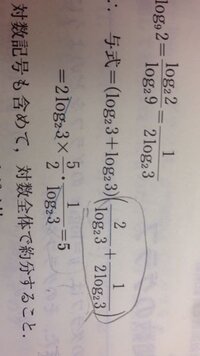 log₉2 = log₂2/log₂9 = 1/(2log₂3)
∴ 与式=(log₂3+log₂3)(2/log₂3 + 1/(2log₂3))
=2log₂3×5/2・1/log₂3=5
対数記号も含めて，対数全体で約分すること．